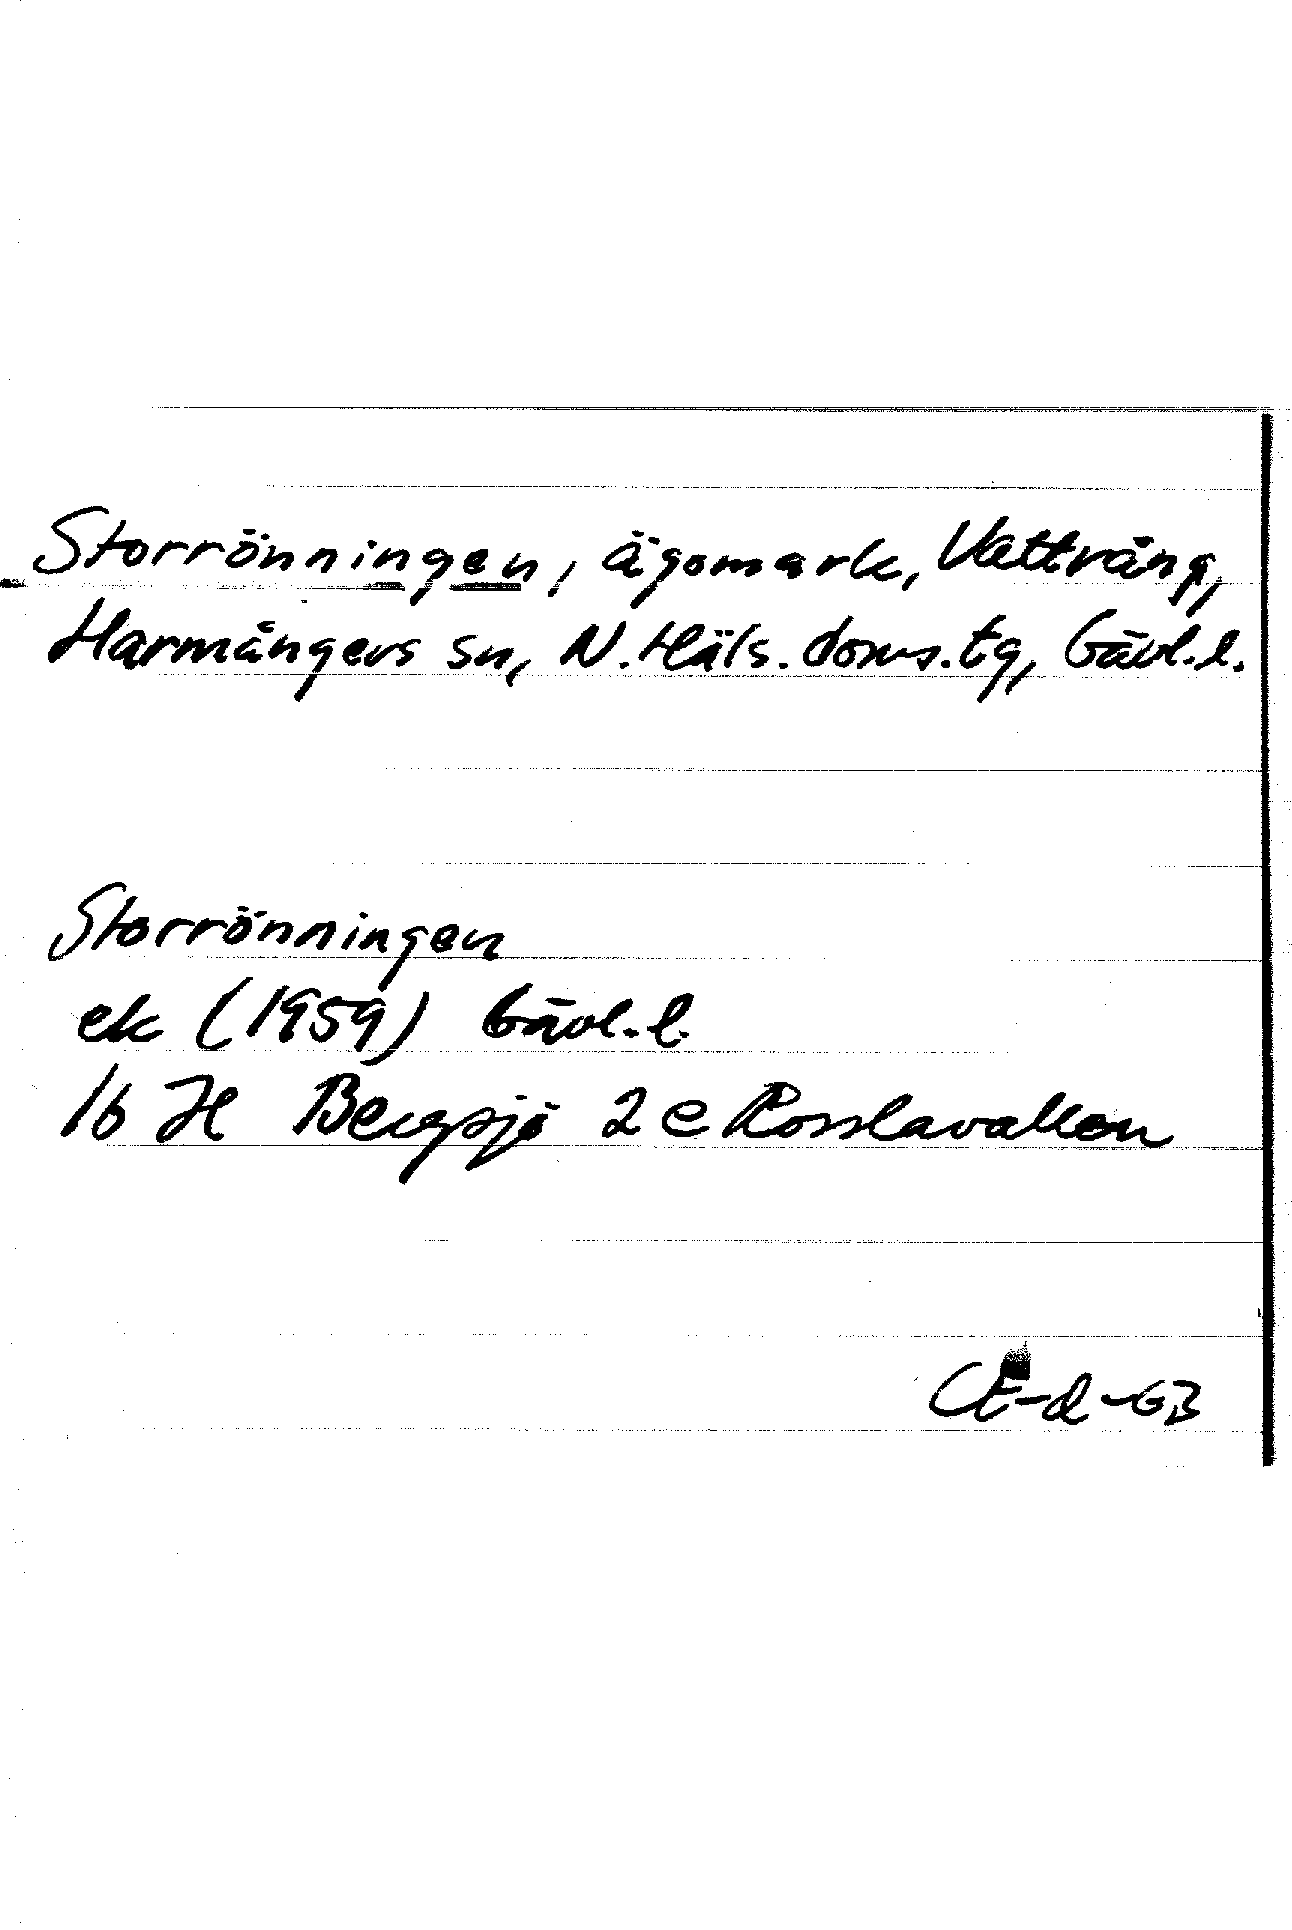 Storrönningen, ägomark, Vattrång,
Harmångers sn, N. Häls. doms. tg, Gävl. l.
Storrönningen
ek (1959) Gävl. l.
16 H Bergsjö 2 e Rosslavallen
CE-d-GB